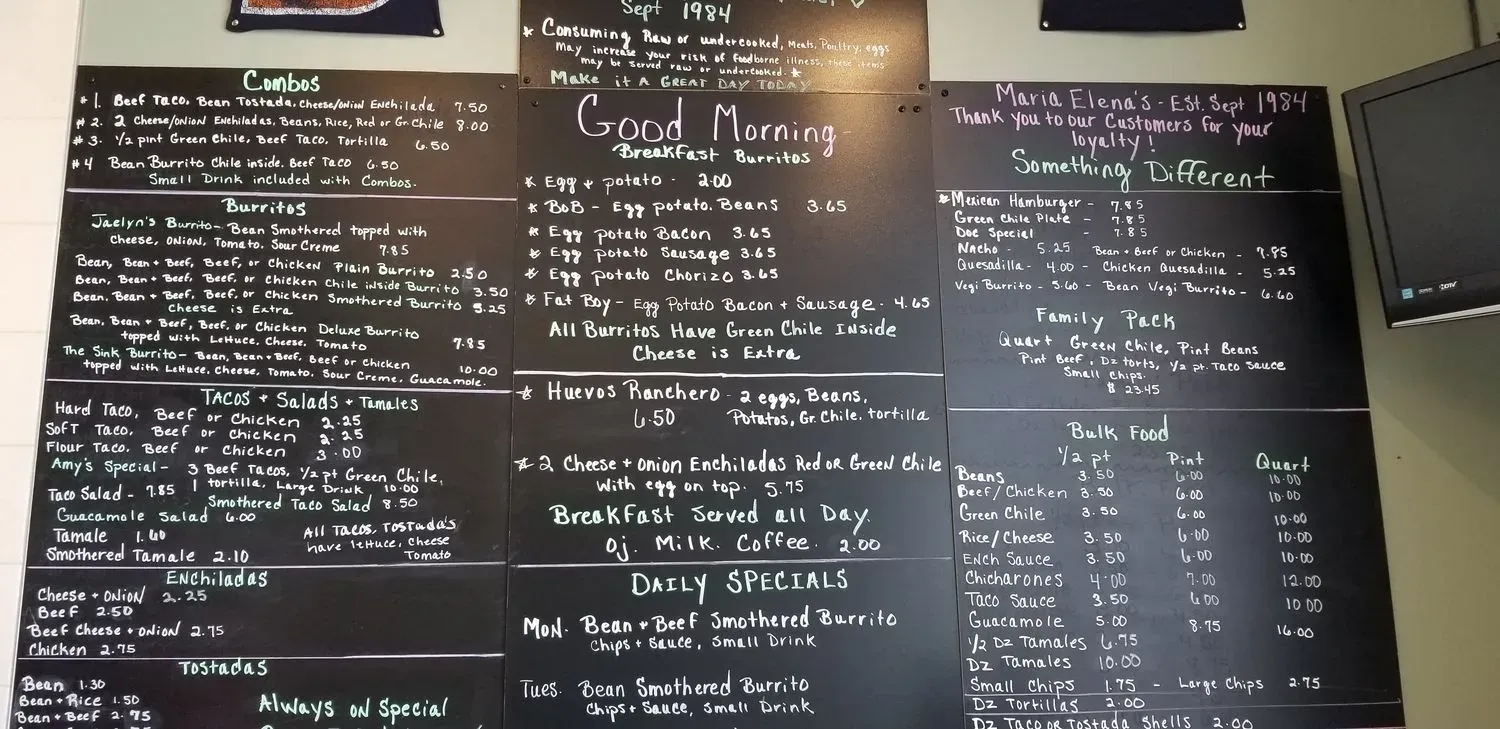 Combos
#1. Beef Taco, Bean Tostada, Cheese/onion Enchilada 7.50
#2. 2 Cheese/onion Enchiladas, Beans, Rice, Red or Gr. Chile 8.00
#3. 1/2 pint Green Chile, Beef Taco, Tortilla 6.50
#4 Bean Burrito Chile inside, Beef Taco 6.50
Small Drink included with Combos.
Burritos
Jaelyn's Burrito - Bean Smothered topped with
Cheese, Onion, Tomato, Sour Creme 7.85
Bean, Bean + Beef, Beef, or Chicken Plain Burrito 2.50
Bean, Bean + Beef, Beef, or Chicken Chile inside Burrito 3.50
Bean, Bean + Beef, Beef, or Chicken Smothered Burrito 5.25
Cheese is Extra
Bean, Bean + Beef, Beef, or Chicken Deluxe Burrito
topped with Lettuce, Cheese, Tomato 7.85
The Sink Burrito - Bean, Bean+Beef, Beef or Chicken 10.00
topped with Lettuce, Cheese, Tomato, Sour Creme, Guacamole.
Tacos + Salads + Tamales
Hard Taco, Beef or Chicken 2.25
Soft Taco, Beef or Chicken 2.25
Flour Taco, Beef or Chicken 3.00
Amy's Special - 3 Beef Tacos, 1/2 pt Green Chile,
1 tortilla, Large Drink 10.00
Taco Salad - 7.85 Smothered Taco Salad 8.50
Guacamole Salad 6.00
Tamale 1.60
Smothered Tamale 2.10
All Tacos, Tostada's
have lettuce, cheese
Tomato
Enchiladas
Cheese + Onion 2.25
Beef 2.50
Beef Cheese + Onion 2.75
Chicken 2.75
Tostadas
Bean 1.30
Bean + Rice 1.50
Bean + Beef 2.75
Always on Special
Sept 1984
* Consuming Raw or undercooked, Meats, Poultry, eggs
may increase your risk of foodborne illness, these items
may be served raw or undercooked. *
Make it A Great Day Today
Good Morning -
Breakfast Burritos
* Egg + potato - 2.00
* BoB - Egg potato, Beans 3.65
* Egg potato Bacon 3.65
* Egg potato Sausage 3.65
* Egg potato Chorizo 3.65
* Fat Boy - Egg Potato Bacon + Sausage - 4.65
All Burritos Have Green Chile Inside
Cheese is Extra
* Huevos Ranchero - 2 eggs, Beans,
6.50 Potatos, Gr. Chile, tortilla
* 2 Cheese + onion Enchiladas Red or Green Chile
with egg on top. 5.75
Breakfast Served all Day.
Oj. Milk. Coffee. 2.00
Daily Specials
Mon. Bean + Beef Smothered Burrito
Chips + Sauce, Small Drink
Tues. Bean Smothered Burrito
Chips + Sauce, Small Drink
Maria Elena's - Est. Sept 1984
Thank you to our Customers for your
loyalty!
Something Different
*Mexican Hamburger - 7.85
Green Chile Plate - 7.85
Doc Special - 7.85
Nacho - 5.25 Bean + Beef or Chicken - 7.85
Quesadilla - 4.00 - Chicken Quesadilla - 5.25
Vegi Burrito - 5.60 - Bean Vegi Burrito - 6.60
Family Pack
Quart Green Chile, Pint Beans
Pint Beef, Dz torts, 1/2 pt. Taco Sauce
Small Chips.
$ 23.45
Bulk Food
1/2 pt Pint Quart
Beans 3.50 6.00 10.00
Beef/Chicken 3.50 6.00 10.00
Green Chile 3.50 6.00 10.00
Rice/Cheese 3.50 6.00 10.00
Ench Sauce 3.50 6.00 10.00
Chicharones 4.00 7.00 12.00
Taco Sauce 3.50 6.00 10.00
Guacamole 5.00 8.75 16.00
1/2 Dz Tamales 6.75
Dz Tamales 10.00
Small Chips 1.75 - Large Chips 2.75
Dz Tortillas 2.00
Dz Taco or Tostada Shells 2.00